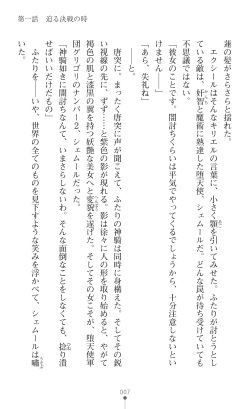 第一話　迫る決戦の時
蓮の髪がさらさらと揺れた。
　エクシールはそんなキリエルの言葉に、小さく顎を引いてみせた。ふたりが討とうとし
ている敵は、奸智と魔術に熟達した堕天使、シェムールだ。どんな罠が待ち受けていても
不思議ではない。
「彼女のことです。闇討ちくらいは平気でやってくるでしょうから、十分注意しないとい
けません――」
「あら、失礼ね」
　――と。
　唐突に、まったく唐突に声が聞こえて、ふたりの神騎は同時に身構えた。そしてその鋭
い視線の先に、ずず……と紫色の影が現れる。影は徐々に人の形を取り始めると、やがて
褐色の肌と漆黒の翼を持つ妖艶な美女へと変貌を遂げた。そしてその女こそが、堕天使軍
団グリゴリのナンバー２、シェムールだった。
「神騎如きに闇討ちなんて、いまさらしないわよ。そんな面倒なことをしなくても、捻り潰
せばいいだけだもの」
　ふたりを――いや、世界の全てのものを見下すような笑みを浮かべて、シェムールは嘯
いた。
007